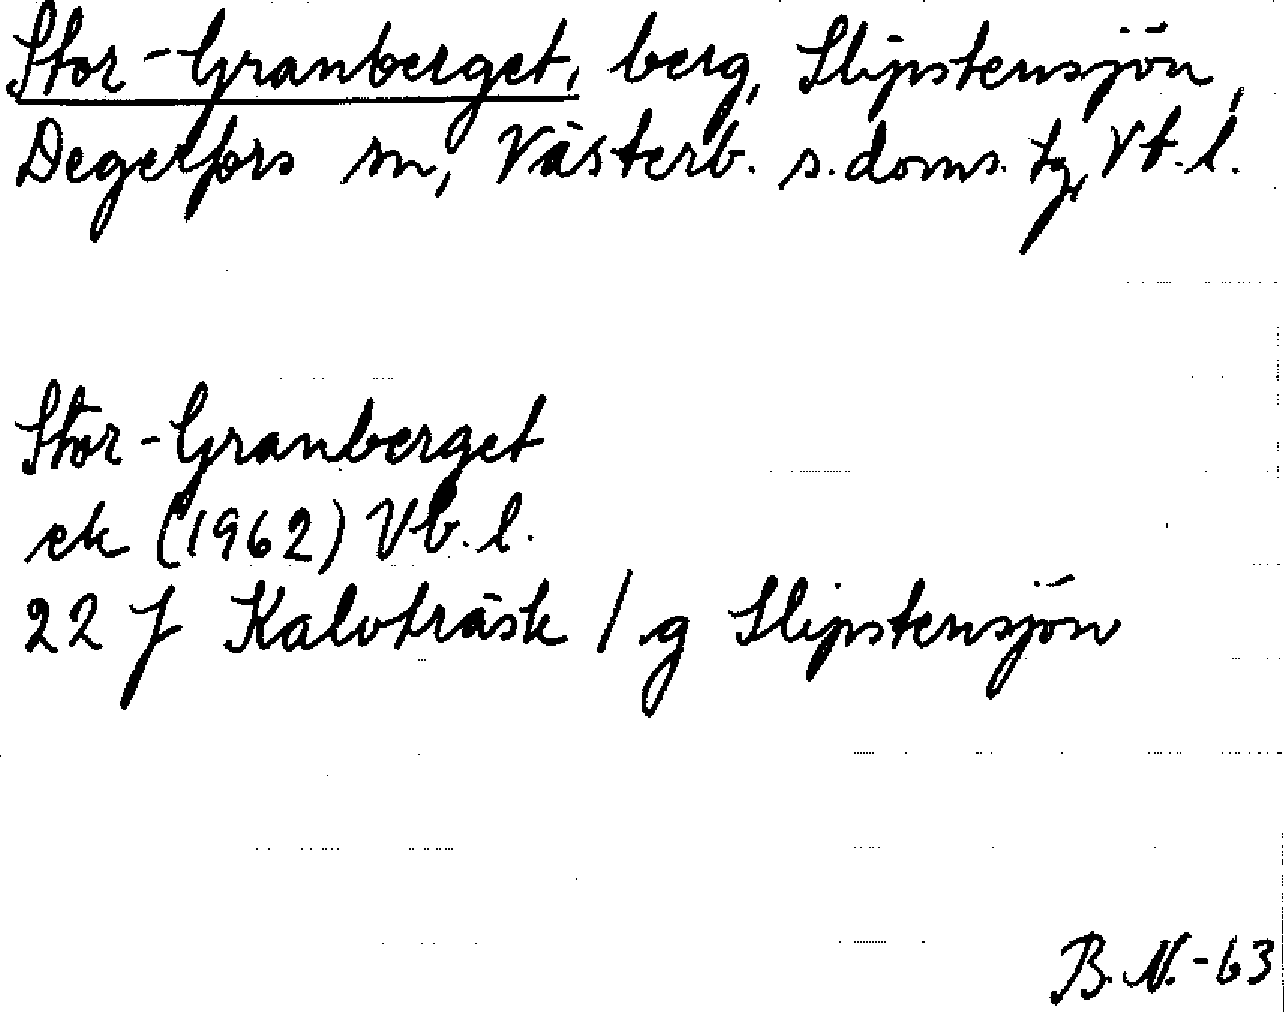 Stor-Granberget, berg, Slipstensjön,
Degerfors sn, Västerb. s. doms. tg, Vb. l.
Stor-Granberget
ek (1962) Vb. l.
22 J Kalvträsk / g Slipstensjön
B. N. -63